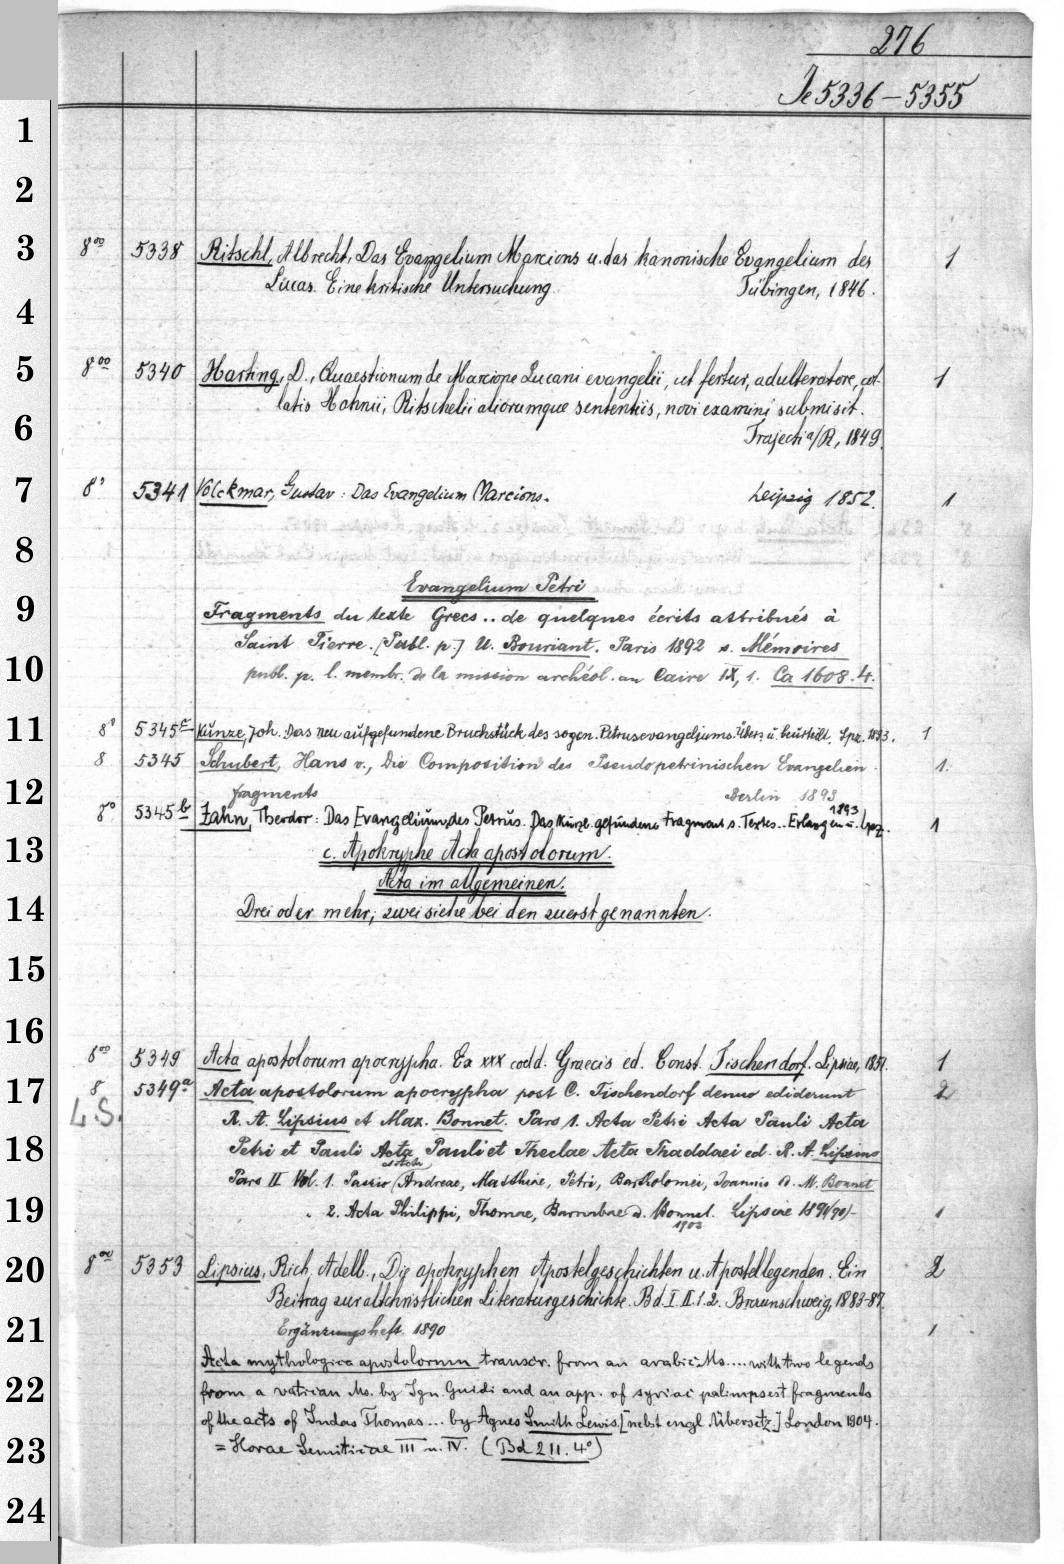 276
Je 5336-5355
1
2
3 8° 5338 Ritschl, Albrecht, Das Evangelium Marcions u. das kanonische Evangelium des 1
Lucas. Eine kritische Untersuchung. Tübingen, 1846.
4
5 8° 5340 Harting, D., Quaestionum de Marcione Lucani evangelii, ut fertur, adulteratore, col- 1
latis Hahnii, Ritschelii aliorumque sententiis, novi examini submisit.
6 Trajecti a/R, 1849.
7 8° 5341 Volckmar, Gustav: Das Evangelium Marcions. Leipzig 1852. 1
8
Evangelium Petri
9 Fragments du texte Grecs .. de quelques écrits attribués à
Saint Pierre. [Publ. p.] U. Bouriant. Paris 1892 s. Mémoires
10 publ. p. l. membr. de la mission archéol. au Caire IX, 1. Ca 1608. 4.
11 8° 5345c Kunze, Joh. Das neu aufgefundene Bruchstück des sogen. Petrusevangeliums. Übers. u. beurteilt. Lpz. 1893. 1
8 5345 Schubert, Hans v., Die Composition des Pseudopetrinischen Evangelien- 1.
12 fragments Berlin 1893
8° 5345b Zahn, Theodor: Das Evangelium des Petrus. Das kürzl. gefundene Fragment s. Textes .. Erlangen u. Lpz. 1893 1
13 c. Apokryphe Acta apostolorum.
Acta im allgemeinen.
14 Drei oder mehr; zwei siehe bei den zuerst genannten.
15
16
8° 5349 Acta apostolorum apocrypha. Ex XXX codd. Graecis ed. Const. Tischendorf. Lipsiae, 1851. 1
17 8 5349a Acta apostolorum apocrypha post C. Tischendorf denuo ediderunt 2
L.S. R. A. Lipsius et Max. Bonnet. Pars 1. Acta Petri Acta Pauli Acta
18 Petri et Pauli Acta Pauli et Theclae Acta Thaddaei ed. R. A. Lipsius
Pars II Vol. 1. Passio Andreae, Matthiae, Petri, Bartholomei, Joannis ed. M. Bonnet
19 2. Acta Philippi, Thomae, Barnabae ed. Bonnet. Lipsiae 1891/90)- 1
1903
20 8° 5353 Lipsius, Rich. Adelb., Die apokryphen Apostelgeschichten u. Apostellegenden. Ein 2
Beitrag zur altchristlichen Literaturgeschichte. Bd. I. II. 1. 2. Braunschweig, 1883-87.
21 Ergänzungsheft. 1890 1
Acta mythologica apostolorum transcr. from an arabic Ms .... with two legends
22 from a vatican Ms. by Ign. Guidi and an app. of syriac palimpsest fragments
of the acts of Judas Thomas ... by Agnes Smith Lewis. [nebst engl. Übersetz.] London 1904.
23 = Horae Semiticae III u. IV. (Bd 211. 4°)
24